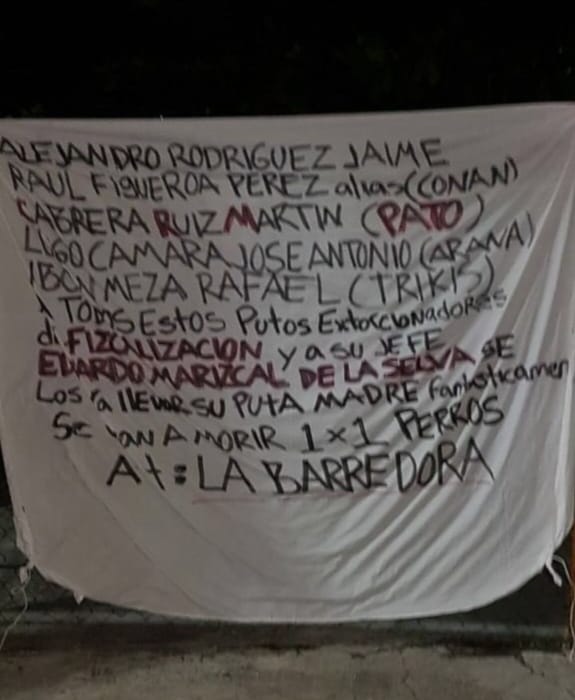 ALEJANDRO RODRIGUEZ JAIME
RAUL FIGUEROA PEREZ alias (CONAN)
CABRERA RUIZ MARTIN (PATO)
LUGO CAMARA JOSE ANTONIO (ARANA)
IBON MEZA RAFAEL (TRIKIS)
A TODOS ESTOS PUTOS EXTOCCIONADORES
di FIZCALIZACION y a su JEFE
EDARDO MARIZCAL DE LA SELVA SE
LOS a llEVAR SU PUTA MADRE
SE VAN A MORIR 1x1 PERROS
At: LA BARREDORA